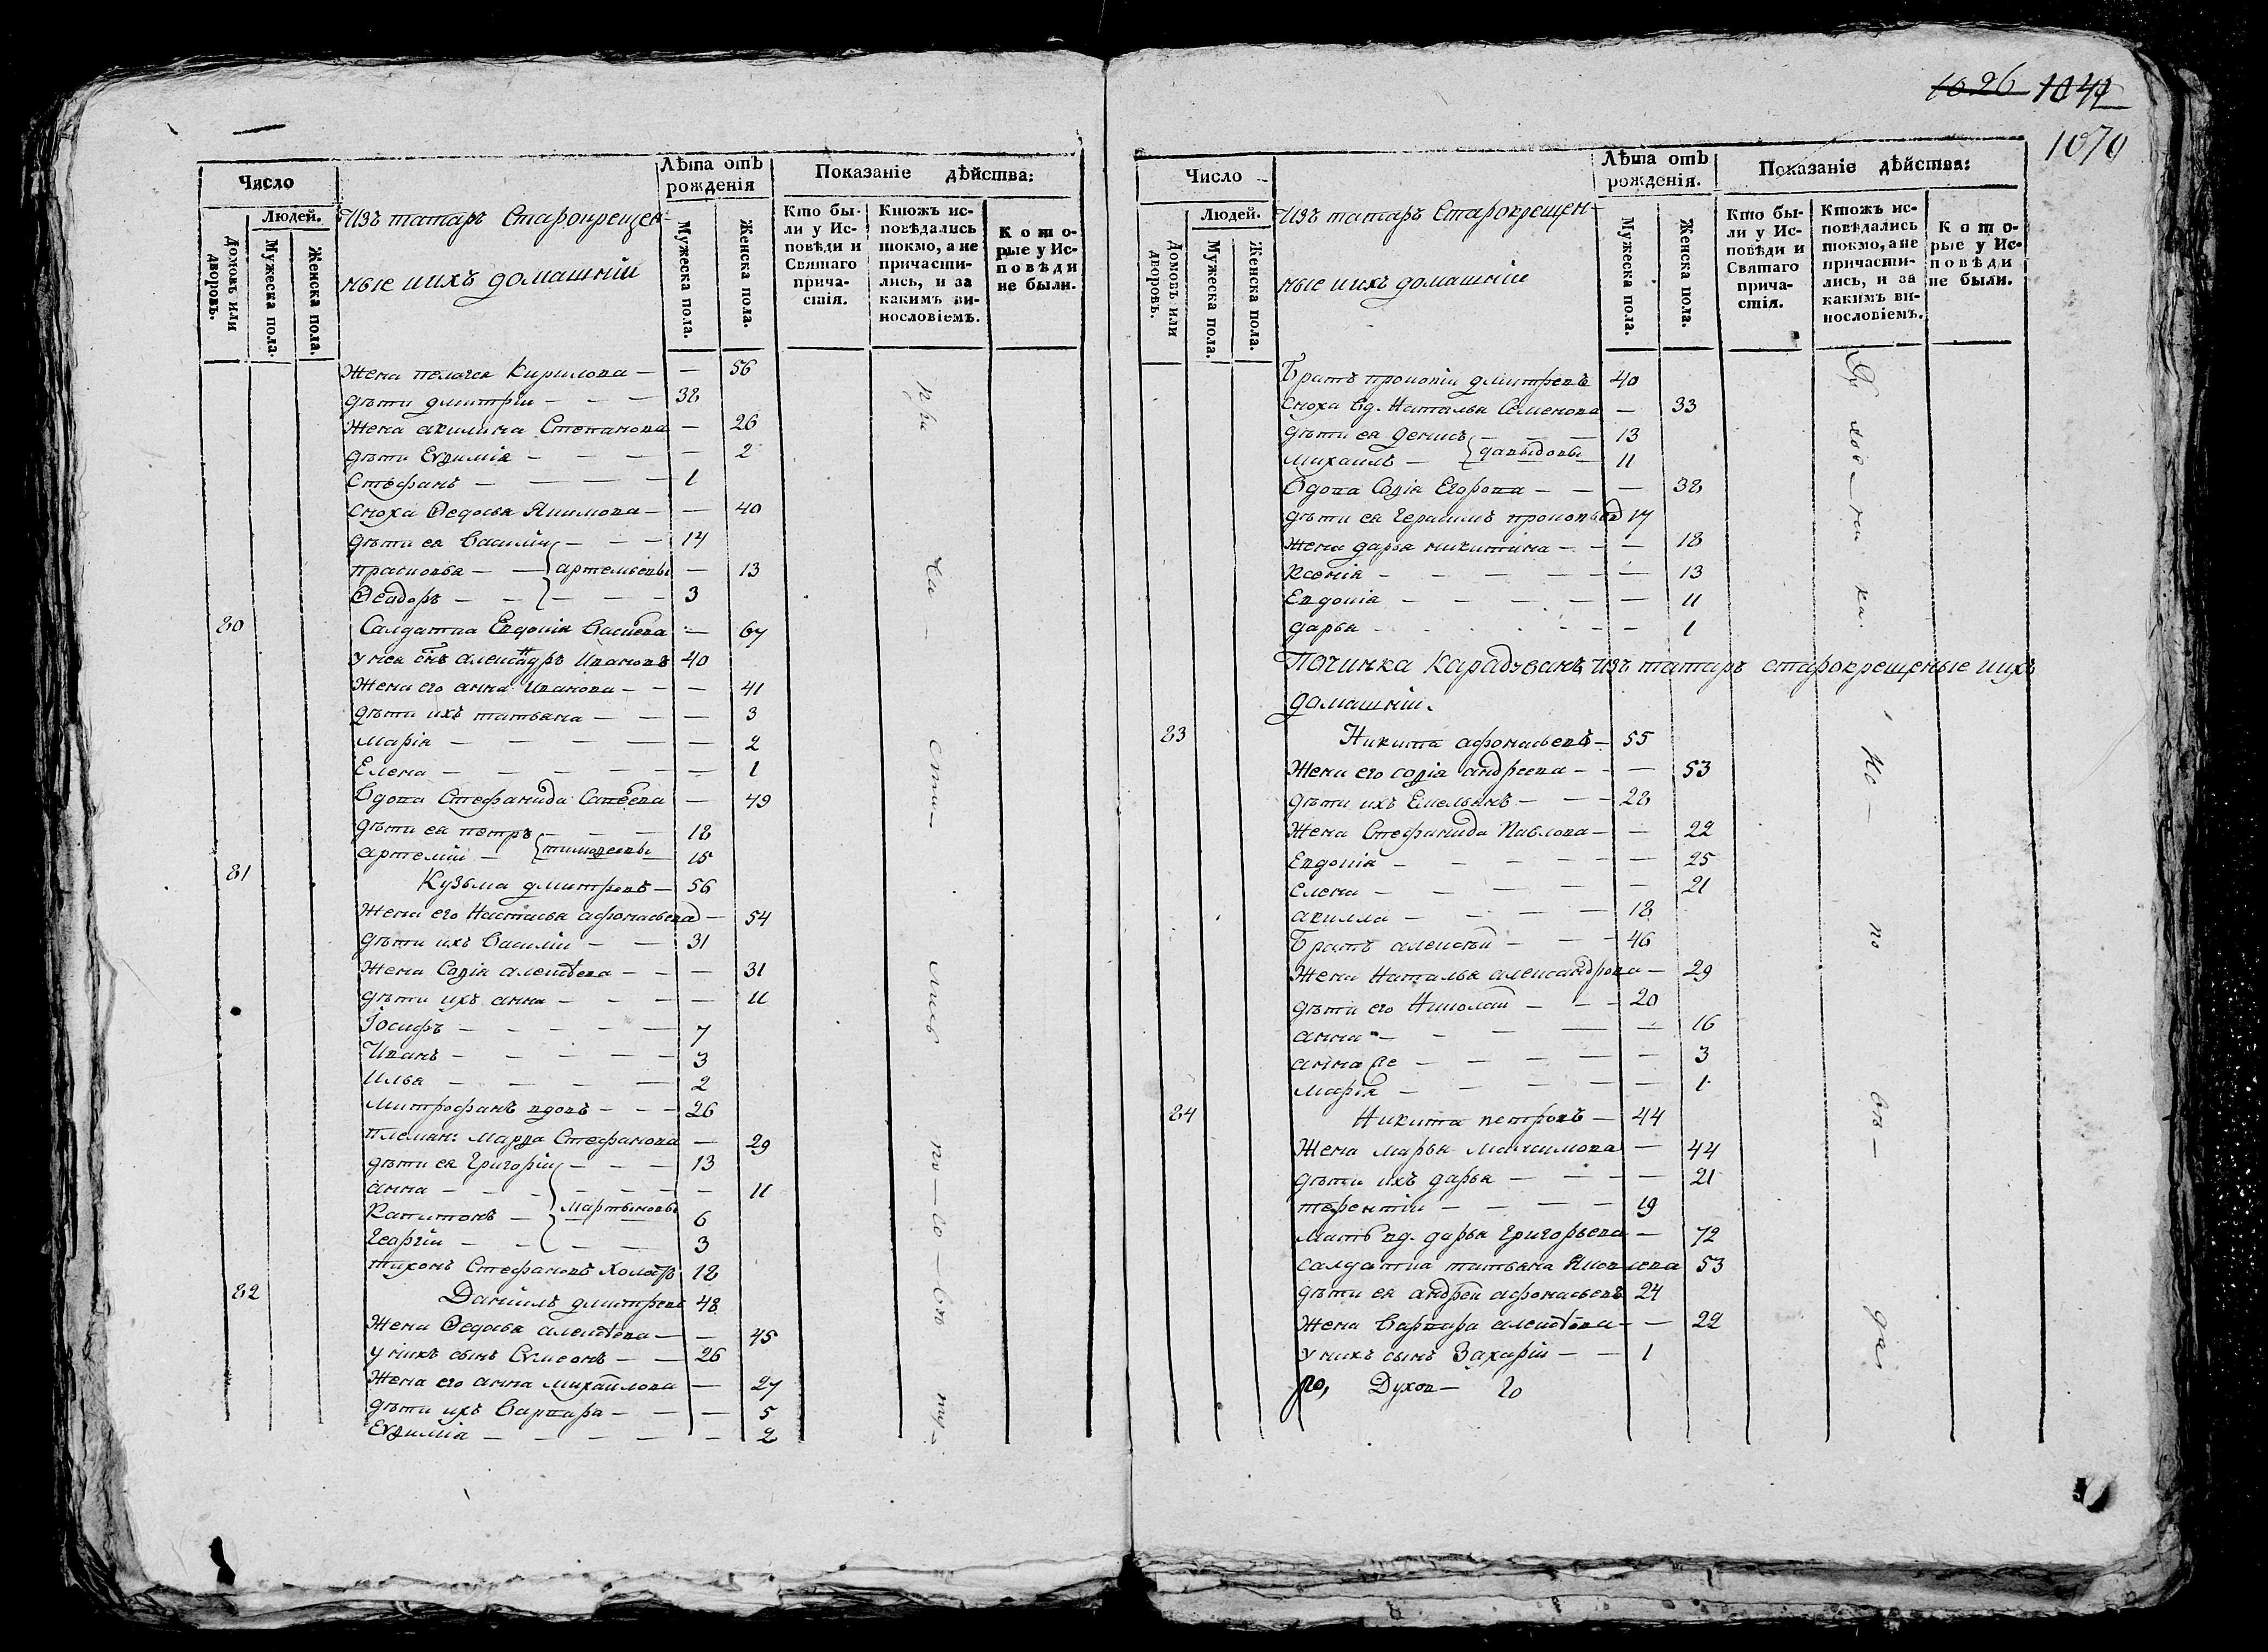 Число
Людей.
Домовъ или дворовъ.
Мужеска пола.
Женска пола.
Изъ татаръ Старокрещен-
ные ихъ домашніи
Лѣта отъ рожденія
Мужеска пола.
Женска пола.
Показаніе дѣйства:
Кто бы-
ли у Ис-
повѣди и
Святаго
прича-
стія.
Ктожъ ис-
повѣдались
токмо, а не
причасти-
лись, и за
какимъ ви-
нословіемъ.
Кото-
рые у Ис-
повѣди
не были.
Жена пелагея Кирилова — — 56
дѣти дмитріи — — — 38
Жена акилина Степанова — 26
дѣти Евѳимія — — — — 2
Стефанъ — — — — 1
сноха Ѳедосья Якимова — — 40
дѣти ея Василіи — — — 14
прасковья — — артемьевы — 13
Ѳеодоръ — — — — — 3
80 Салдатка Евдокія Васиева — 67
у нея снъ александръ Ивановъ 40
Жена его анна Иванова — — — 41
дѣти ихъ татьяна — — — 3
марія — — — — — — 2
Елена — — — — — — 1
Вдова Стефанида Савеева — 49
дѣти ея петръ — — — 18
артеміи — тимоѳеевы 15
81 Кузьма дмитревъ — 56
Жена его Настасья афонасьева — 54
дѣти ихъ Василіи — — 31
Жена Софія алексѣева — — — 31
дѣти ихъ анна — — — — 11
Іосифъ — — — — — 7
Иванъ — — — — — 3
Илья — — — — 2
митрофанъ вдовъ — — — 26
племян: марфа Стефанова — 29
дѣти ея Григоріи — — — 13
анна — — — — — — — 11
Капитонъ — мартыновы 6
Георгіи — — — — 3
тихонъ Стефановъ холостъ 18
82 Даніилъ дмитревъ 48
Жена Ѳедосья алексѣева — — 45
у нихъ сынъ Сѵмеонъ — — 26
Жена его анна михайлова — 27
дѣти ихъ Варвара — — — 5
Евѳимія — — — — — 2
1026 1042
1070
Число
Людей.
Домовъ или дворовъ.
Мужеска пола.
Женска пола.
Изъ татаръ Старокрещен-
ные ихъ домашніи
Лѣта отъ рожденія.
Мужеска пола.
Женска пола.
Показаніе дѣйства:
Кто бы-
ли у Ис-
повѣди и
Святаго
прича-
стія.
Ктожъ ис-
повѣдались
токмо, а не
причасти-
лись, и за
какимъ ви-
нословіемъ.
Кото-
рые у Ис-
повѣди
не были.
Братъ прокопіи дмитревъ 40
сноха вд. Наталья Семенова — 33
дѣти ея денисъ — — — 13
михаилъ — давыдовы 11
Вдова Софія Егорова — — — 38
дѣти ея Герасимъ 17
Жена дарья никитина — — — 18
Ксенія — — — — — — 13
Евдокія — — — — — — 11
дарья — — 1
Починка Карадувань изъ татаръ старокрещеные ихъ
домашніи.
83 Никита афонасьевъ — 55
Жена его софія андреева — — — 53
дѣти ихъ Емельянъ — — — 28
Жена Стефанида Павлова — — 22
Евдокія — — — — — — 25
елена — — — — — 21
акилла — — — — 18
Братъ алексѣй — — — 46
Жена Наталья александрова — 29
дѣти его Николай — — — 20
анна — — — — — 16
анна же — — — — — 3
марія — — — — — — 1
84 Никита петровъ — 44
Жена марья максимова — 44
дѣти ихъ дарья — — — — 21
терентіи — — — — 19
мать вд. дарья Григорьева — 72
салдатка татьяна Яковлева 53
дѣти ея андрей афонасьевъ 24
Жена Варвара алексѣева — — 22
у нихъ сынъ Захарій — — 1